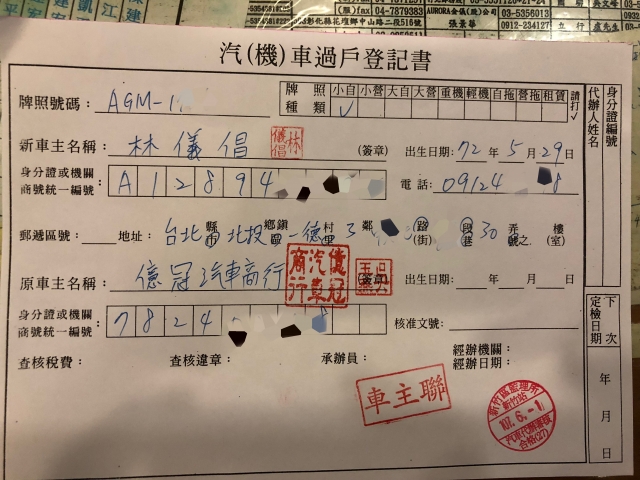 03-5356013
張素馨
0912-234127
04-7879383
汽(機)車過戶登記書
牌照號碼： AGM-1
牌照種類 小自 小營 大自 大營 重機 輕機 自拖 營拖 租賃 請打✓
✓
代辦人姓名
身分證編號
新車主名稱： 林儀倡 (簽章) 出生日期: 72 年 5 月 29 日
身分證或機關商號統一編號 A 1 2 8 9 4
電話： 09124 8
郵遞區號： 地址： 台北 縣市 北投 鄉鎮 一德 村里 3 鄰 路(街) 段巷 30 弄號之 樓(室)
原車主名稱： 億冠汽車商行 出生日期: 年 月 日
億冠汽車商行
身分證或機關商號統一編號 7 8 2 4 8
核准文號：
查核稅費： 查核違章： 承辦員： 經辦機關：
經辦日期：
下次定檢日期
年
月
日
車主聯
新竹區監理所
新竹站
107. 6. -1
汽車代辦審核
合格(27)